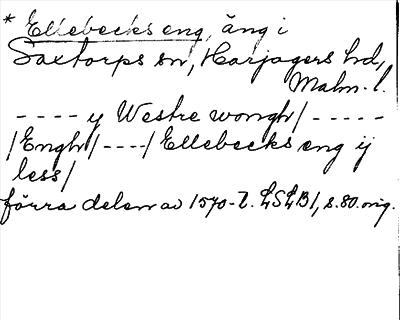 * Ellebecks eng, äng i
Saxtorps sn, Harjagers hd,
Malm. l.
---- y Westre wongh/ -----
/Engh/ ----/ Ellebecks eng ij
less/
förra delen av 1570-t. LSLB1, s. 80. orig.